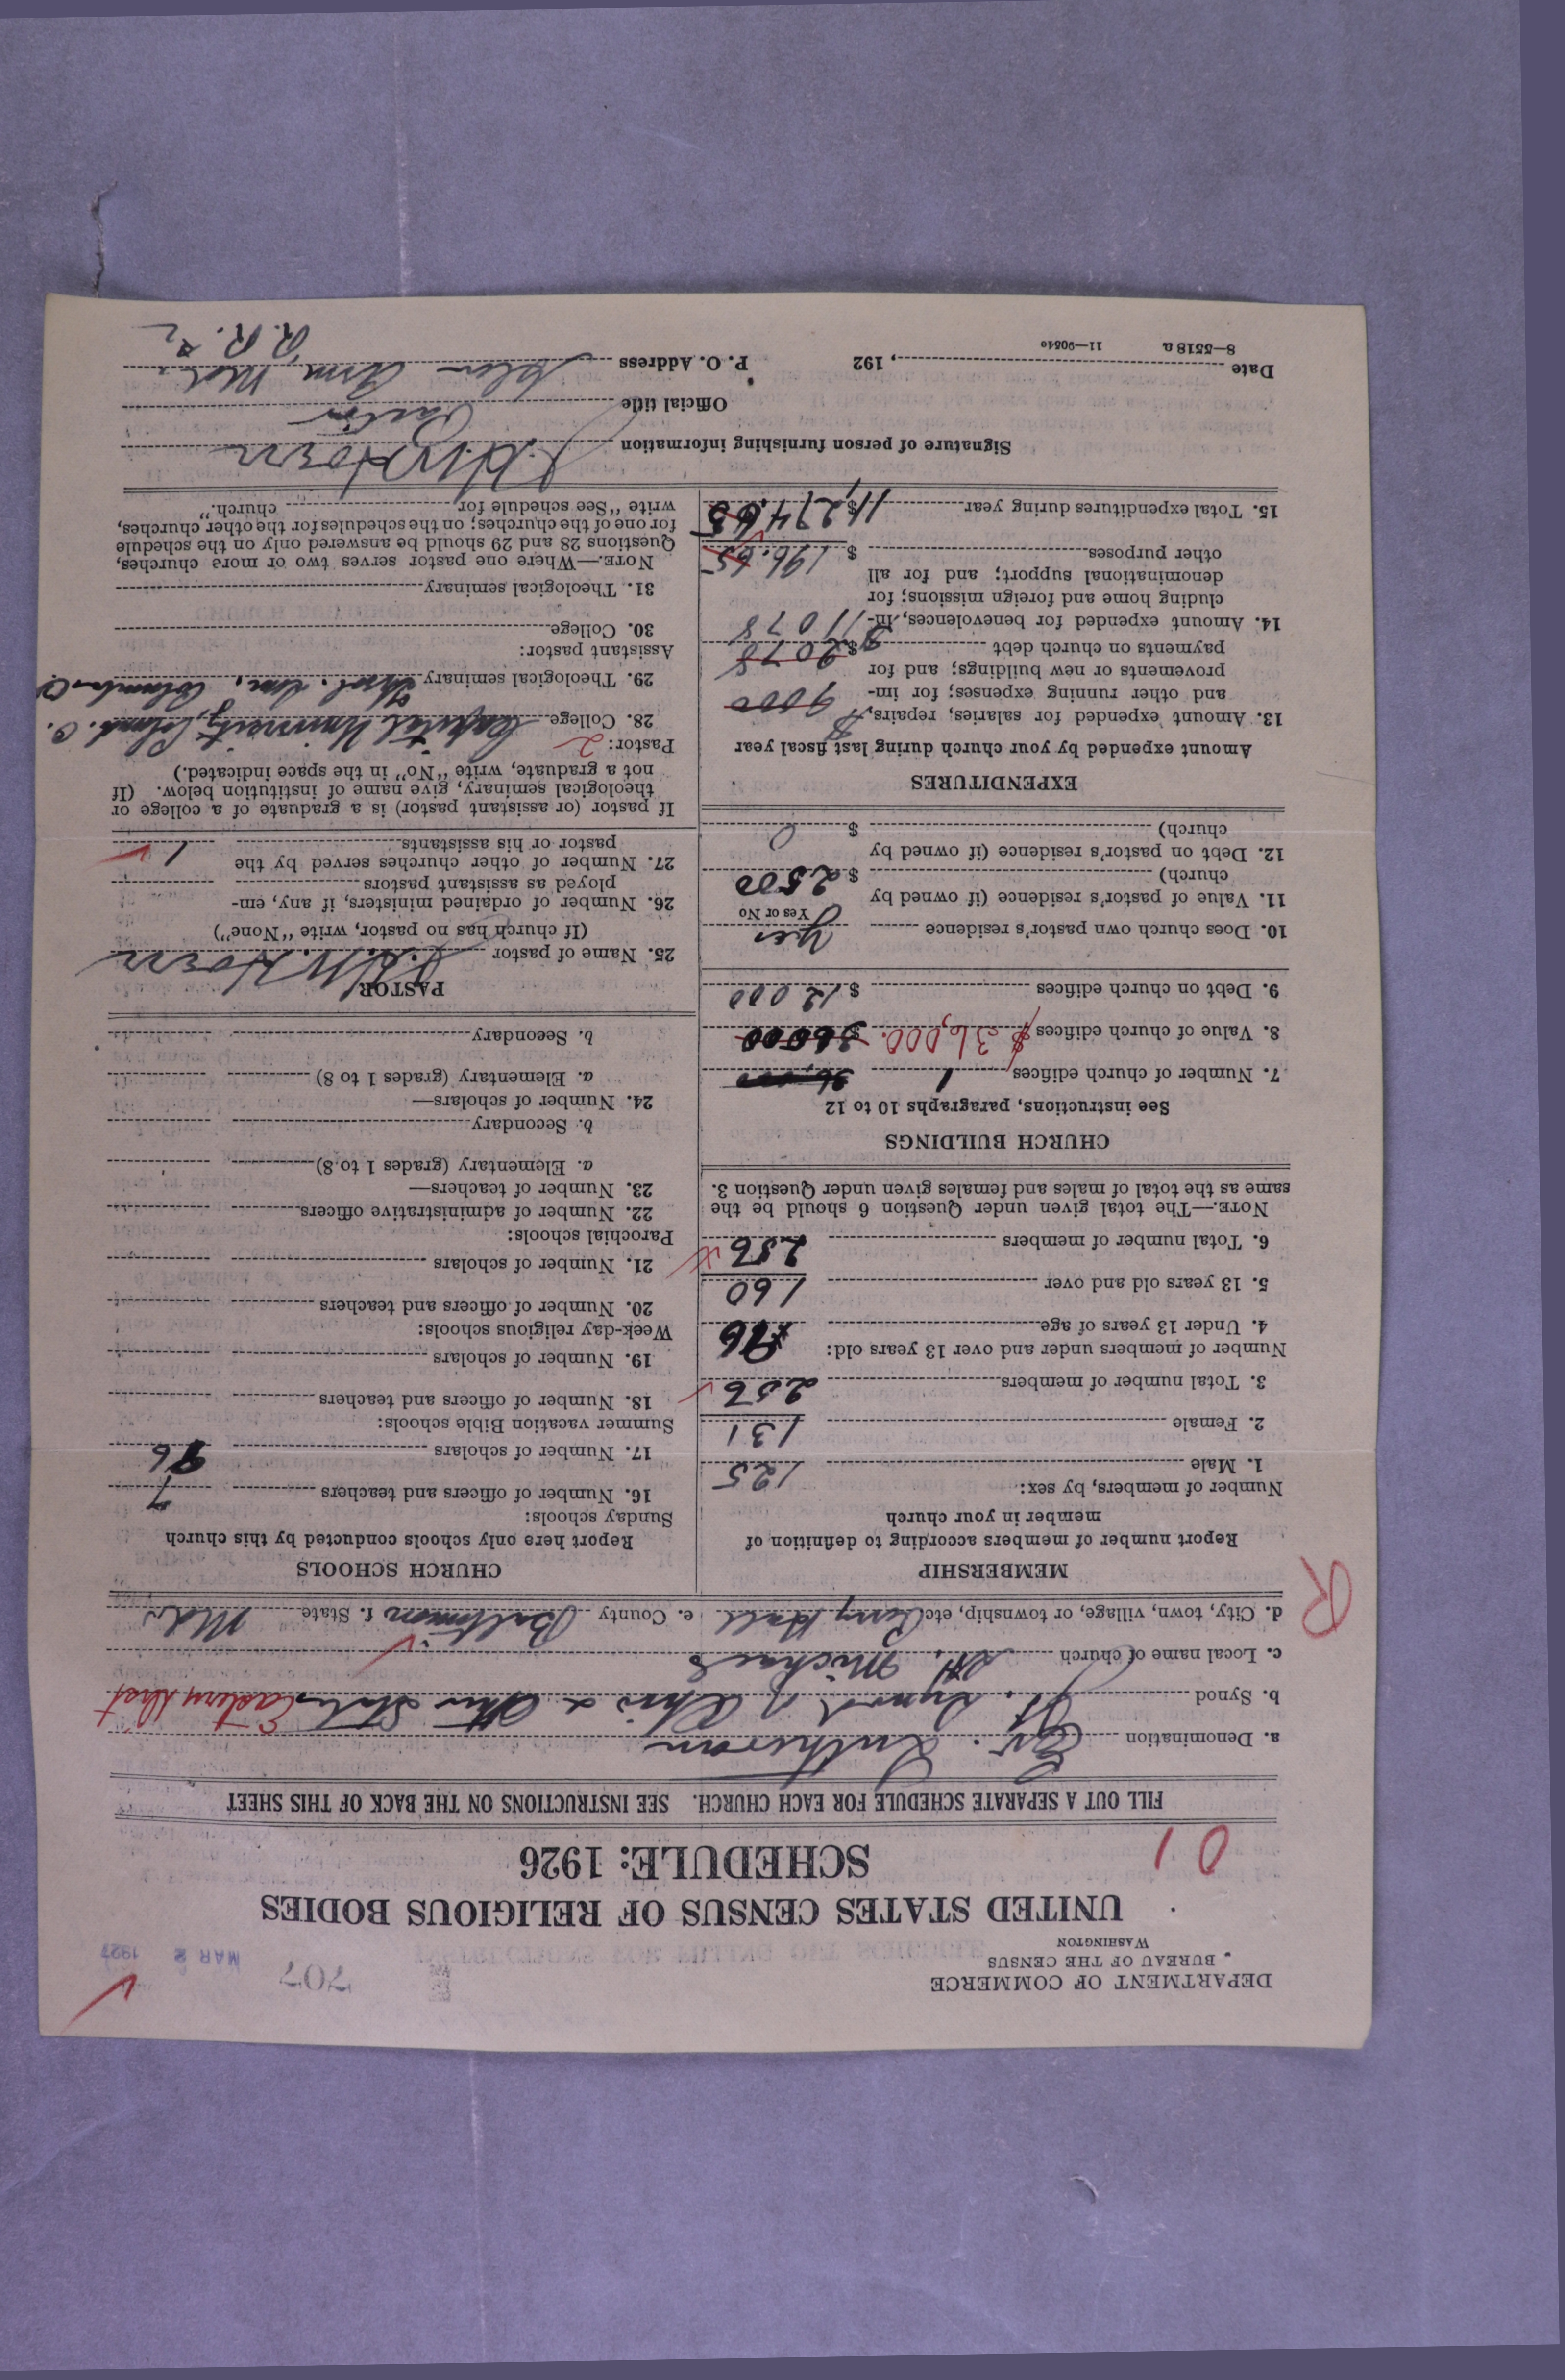 DEPARTMENT OF COMMERCE
BUREAU OF THE CENSUS
WASHINGTON
707
MAR 2 1927
UNITED STATES CENSUS OF RELIGIOUS BODIES
SCHEDULE: 1926
01
FILL OUT A SEPARATE SCHEDULE FOR EACH CHURCH. SEE INSTRUCTIONS ON THE BACK OF THIS SHEET
a. Denomination Ev. Lutheran
b. Synod Jt. Synod of Ohio & Other States Eastern Dist
c. Local name of church St. Michaels
d. City, town, village, or township, etc. Perry Hall e. County Baltimore f. State Md.
R
MEMBERSHIP
Report number of members according to definition of
member in your church
Number of members, by sex:
1. Male 125
2. Female 131
3. Total number of members 256
Number of members under and over 13 years old:
4. Under 13 years of age 96
5. 13 years old and over 160
6. Total number of members 256
NOTE.—The total given under Question 6 should be the
same as the total of males and females given under Question 3.
CHURCH BUILDINGS
See instructions, paragraphs 10 to 12
7. Number of church edifices 1 36,000
8. Value of church edifices $36,000. $36000
9. Debt on church edifices $12000
10. Does church own pastor's residence Yes
Yes or No
11. Value of pastor's residence (if owned by
church) $2500
12. Debt on pastor's residence (if owned by
church) $0
EXPENDITURES
Amount expended by your church during last fiscal year
13. Amount expended for salaries, repairs, 9000
and other running expenses; for im-
provements or new buildings; and for
payments on church debt $2078
14. Amount expended for benevolences, in- 11078
cluding home and foreign missions; for
denominational support; and for all
other purposes $196.65
15. Total expenditures during year $11,274.65
CHURCH SCHOOLS
Report here only schools conducted by this church
Sunday schools:
16. Number of officers and teachers 7
17. Number of scholars 96
Summer vacation Bible schools:
18. Number of officers and teachers
19. Number of scholars
Week-day religious schools:
20. Number of officers and teachers
21. Number of scholars
Parochial schools:
22. Number of administrative officers
23. Number of teachers—
a. Elementary (grades 1 to 8)
b. Secondary
24. Number of scholars—
a. Elementary (grades 1 to 8)
b. Secondary
PASTOR
25. Name of pastor J.H.W. Hoern
(If church has no pastor, write "None")
26. Number of ordained ministers, if any, em-
ployed as assistant pastors
27. Number of other churches served by the
pastor or his assistants 1
If pastor (or assistant pastor) is a graduate of a college or
theological seminary, give name of institution below. (If
not a graduate, write "No" in the space indicated.)
Pastor: 2
28. College Capital University, Columb. O.
29. Theological seminary Theol. Sem., Columb. O.
Assistant pastor:
30. College
31. Theological seminary
NOTE.—Where one pastor serves two or more churches,
Questions 28 and 29 should be answered only on the schedule
for one of the churches; on the schedules for the other churches,
write "See schedule for church."
Signature of person furnishing information J.H.W. Hoern
Official title Pastor
Date , 192 P. O. Address Glen Arm Md.
R.R. 2
8—5518 a 11—9054o